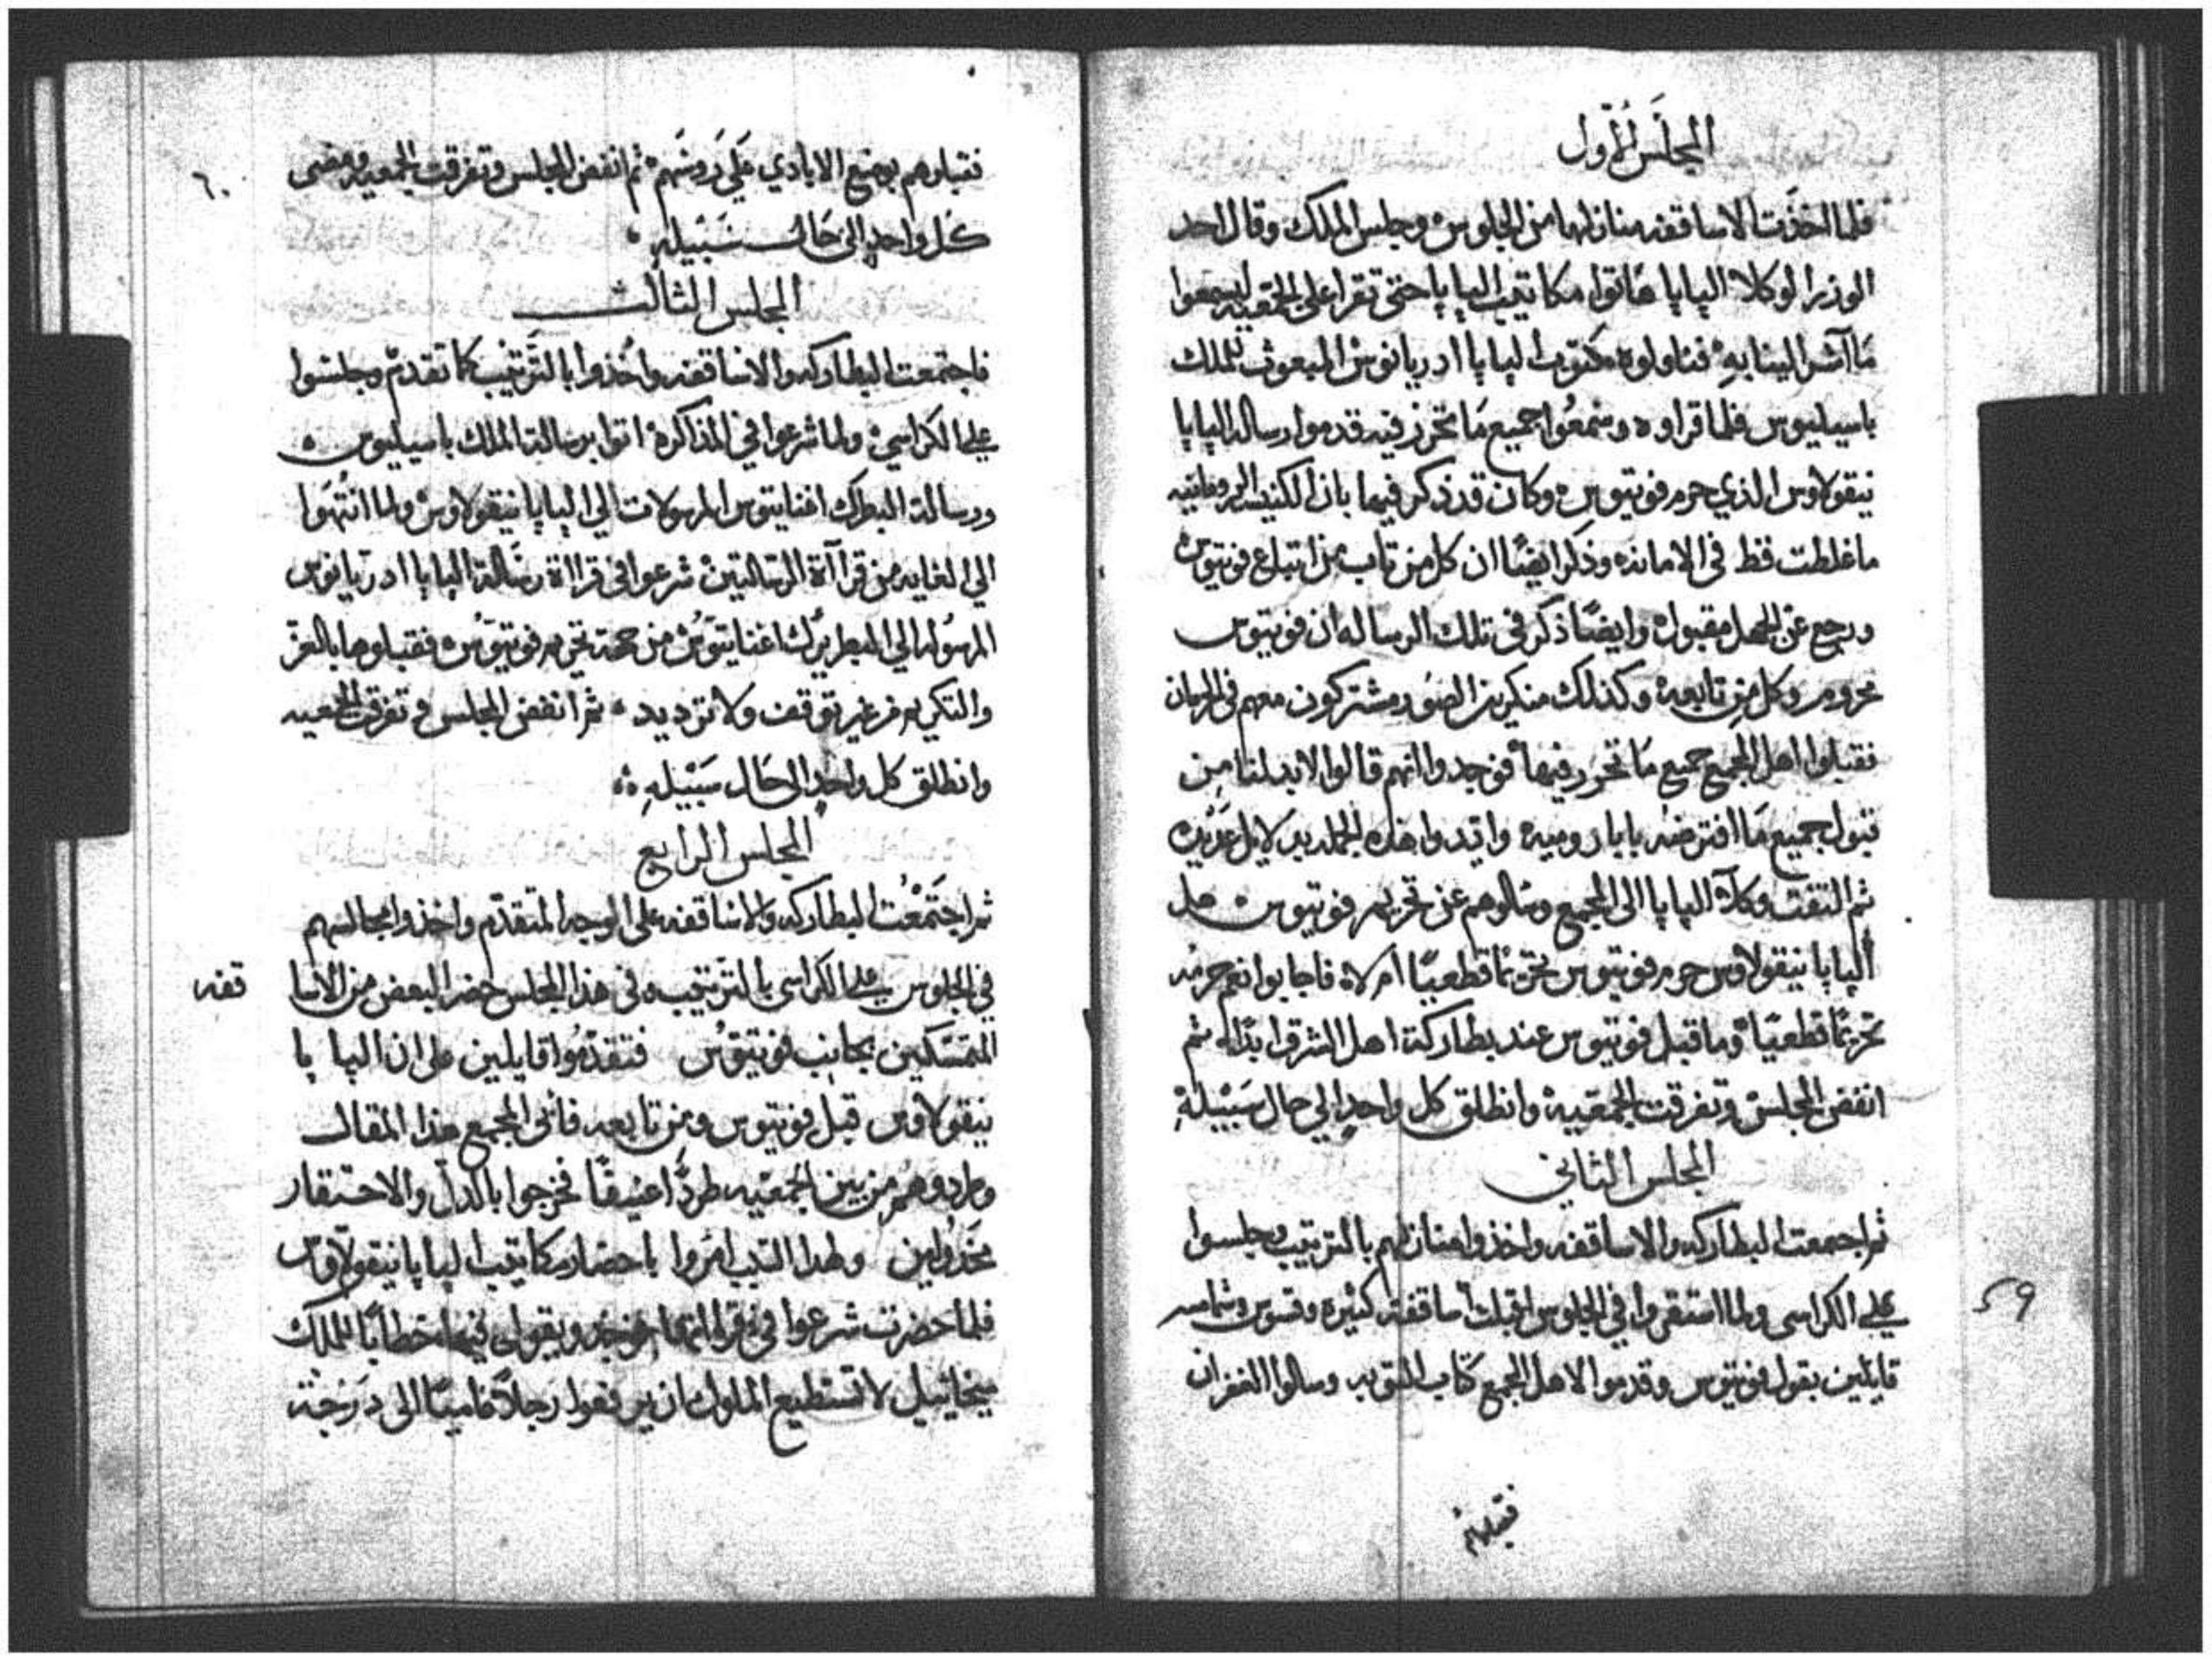 المجلس الأول
فلما اتخذت الاساقفه منازلها من الجلوس وجلس الملك وقال احد
الوزرا لوكلا البابا هاتوا مكاتيب البابا حتى تقرا على الجمعيه ليسمعوا
ما آشر الينا به فناولوه مكتوب البابا ادريانوس المبعوث للملك
باسيليوس فلما قراوه وسمعوا جميع ما تحرر فيه قدموا رسالة البابا
نيقولاوس الذي حرم فوتيوس وكان قد ذكر فيها بان الكنيسه الرومانيه
ما غلطت قط في الامانه وذكر ايضًا ان كل من تاب من اتباع فوتيوس
ورجع عن الجهل مقبول وايضًا ذكر في تلك الرساله ان فوتيوس
محروم وكل من تابعه وكذلك منكرين الصور مشتركون معهم في الحرمان
فقبلوا اهل المجمع جميع ما تحرر فيها فوجدوا انهم قالوا لا بد لنا من
قبول جميع ما افترضه بابا روميه وايدوا هذه الجمله
ثم التفت وكلآ البابا الى المجمع وسالوهم عن تحريم فوتيوس هل
البابا نيقولاوس حرم فوتيوس تحريمًا قطعيًا ام لا فاجابوا نعم حرمه
تحريمًا قطعيًا وما قبل فوتيوس عند بطاركة اهل الشرق ابدًا ثم
انفض المجلس وتفرقت الجمعيه وانطلق كل واحدٍ الي حال سبيله
المجلس الثاني
ثم اجتمعت البطاركه والاساقفه واخذوا منازلهم بالترتيب وجلسوا
علي الكراسي ولما استقروا في الجلوس اقبلت اساقفة كثيره وقسوس وشمامسه
59
قايلين بقول فوتيوس وقدموا لاهل المجمع كتاب التوبه وسالوا الغفران
فقبلوهم
فقبلوهم بوضع الايادي علي روسهم ثم انفض المجلس وتفرقت الجمعيه ومضى
٦٠
كل واحدٍ الى حال سبيله
المجلس الثالث
فاجتمعت البطاركه والاساقفه واخذوا بالترتيب كما تقدم وجلسوا
علي الكراسي ولما شرعوا في المذاكره اتوا برسالة الملك باسيليوس
ورسالة البطرك اغناتيوس المرسولات الي البابا نيقولاوس ولما انتهوا
الي الغايه من قرآآة الرسالتين شرعوا في قرااة رسالة البابا ادريانوس
المرسوله الي البطريرك اغناتيوس من جهة تحريم فوتيوس فقبلوها بالعز
والتكريم من غير توقف ولا ترديد ثم انفض المجلس وتفرقت الجمعيه
وانطلق كل واحدٍ الى حال سبيله
المجلس الرابع
ثم اجتمعت البطاركه والاساقفه على الوجه المتقدم واخذوا مجالسهم
في الجلوس علي الكراسي بالترتيب وفي هذا المجلس حضر البعض من الاسا
قفه
المتمسكين بجانب فوتيوس فتقدموا قايلين على ان البابا
نيقولاوس قبل فوتيوس ومن تابعه فأبى المجمع هذا المقال
وطردوهم من بين الجمعيه طردًا عنيفًا فخرجوا بالذل والاحتقار
مخذولين ولهذا السبب امروا باحضار مكاتيب البابا نيقولاوس
فلما حضرت شرعوا في قرااتها فوجد ويقول فيها خطابًا للملك
ميخاييل لا تستطيع الملوك ان يرفعوا رجلًا عاميًا الى درجة